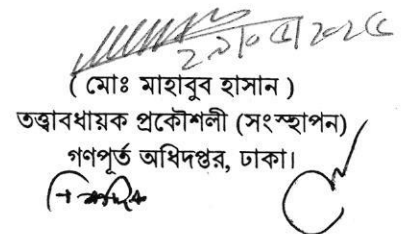 ( মোঃ মাহাবুব হাসান )
তত্ত্বাবধায়ক প্রকৌশলী (সংস্হাপন)
গণপূর্ত অধিদপ্তর, ঢাকা।